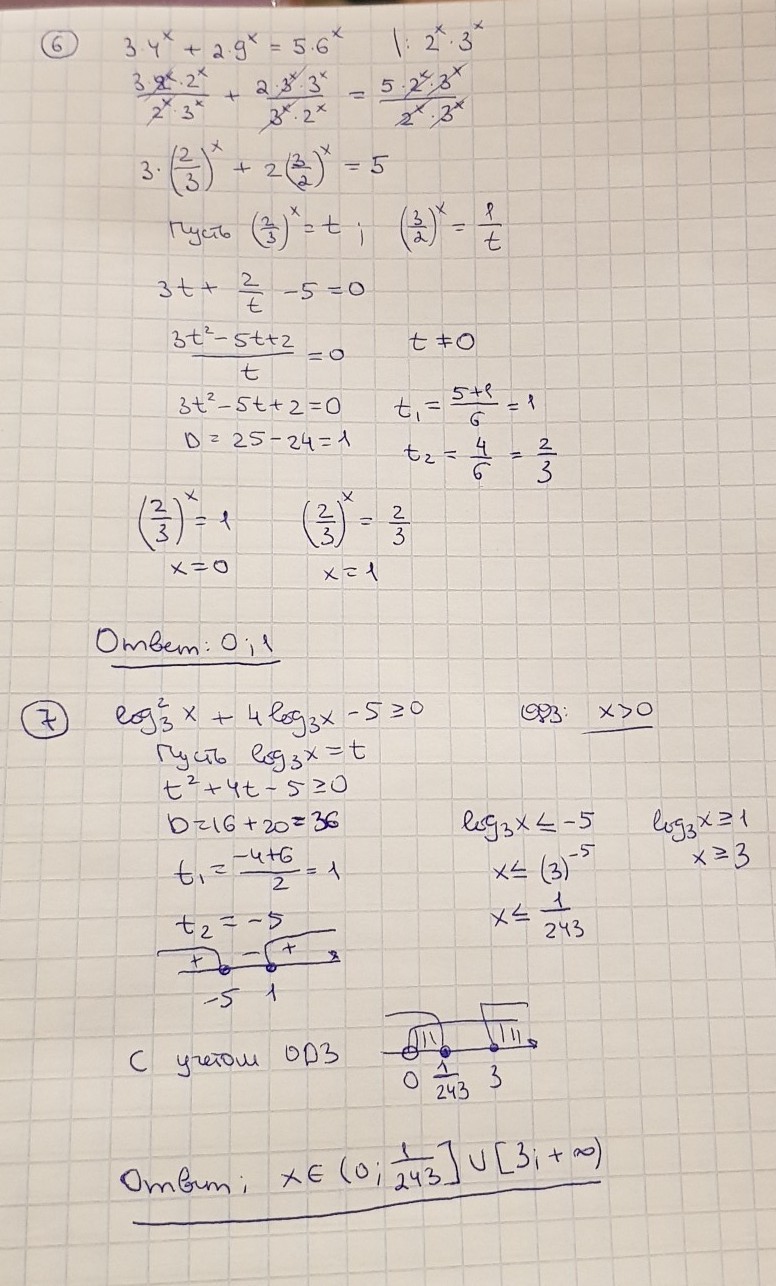 6 3·4^x + 2·9^x = 5·6^x |: 2^x·3^x
(3·2^x·2^x)/(2^x·3^x) + (2·3^x·3^x)/(3^x·2^x) = (5·2^x·3^x)/(2^x·3^x)
3·(2/3)^x + 2(3/2)^x = 5
Пусть (2/3)^x = t ; (3/2)^x = 1/t
3t + 2/t - 5 = 0
(3t² - 5t + 2)/t = 0 t ≠ 0
3t² - 5t + 2 = 0 t₁ = (5+1)/6 = 1
D = 25 - 24 = 1 t₂ = 4/6 = 2/3
(2/3)^x = 1 (2/3)^x = 2/3
x = 0 x = 1
Ответ: 0; 1
7 log₃² x + 4 log₃x - 5 ≥ 0 ОДЗ: x > 0
Пусть log₃x = t
t² + 4t - 5 ≥ 0
D = 16 + 20 = 36 log₃x ≤ -5 log₃x ≥ 1
t₁ = (-4+6)/2 = 1 x ≤ (3)^-5 x ≥ 3
t₂ = -5 x ≤ 1/243
+ - +
-5 1
С учетом ОДЗ 0 1/243 3
Ответ; x ∈ (0; 1/243] ∪ [3; +∞)